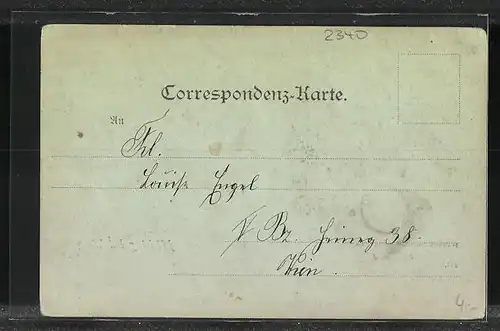 2340
Correspondenz-Karte.
An
Frl.
Louise Engel
V Bz. 38.
Wien.
4.-